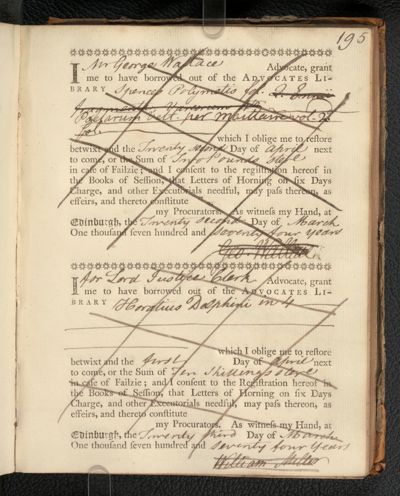 195
I Mr George Wallace Advocate, grant
me to have borrowed out of the ADVOCATES LI-
BRARY Spences Polymetis fol.
per vol. 2
fol.
which I obliġe me to reſtore
betwixt and the Twenty second Day of April next
to come, or the Sum of Two Pounds Ster
in caſe of Failzie; and I conſent to the regiſtration hereof in
the Books of Seſſion, that Letters of Horning on ſix Days
Charge, and other Executorials needful, may paſs thereon, as
effeirs, and thereto conſtitute
my Procurators. As witneſs my Hand, at
Edinburgh, the Twenty second Day of March
One thouſand ſeven hundred and seventy four years
Geo. Wallace
I for Lord Justice Clerk Advocate, grant
me to have borrowed out of the ADVOCATES LI-
BRARY Horatius Delphini in 4
which I oblige me to reſtore
betwixt and the first Day of April next
to come, or the Sum of Ten Shillings Sterl
in caſe of Failzie; and I conſent to the Regiſtration hereof in
the Books of Seſſion, that Letters of Horning on ſix Days
Charge, and other Executorials needful, may paſs thereon, as
effeirs, and thereto conſtitute
my Procurators. As witneſs my Hand, at
Edinburgh, the Twenty third Day of March
One thouſand ſeven hundred and seventy four Years
William Miller